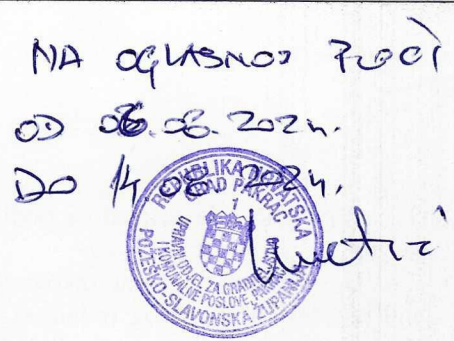 NA OGLASNOJ PLOČI
OD 06.06.2024.
DO 14.06.2024.
REPUBLIKA HRVATSKA
GRAD PAKRAC
1
UPRAVNI ODJEL ZA GRADITELJSTVO
I KOMUNALNE POSLOVE, PAKRAC
POŽEŠKO-SLAVONSKA ŽUPANIJA